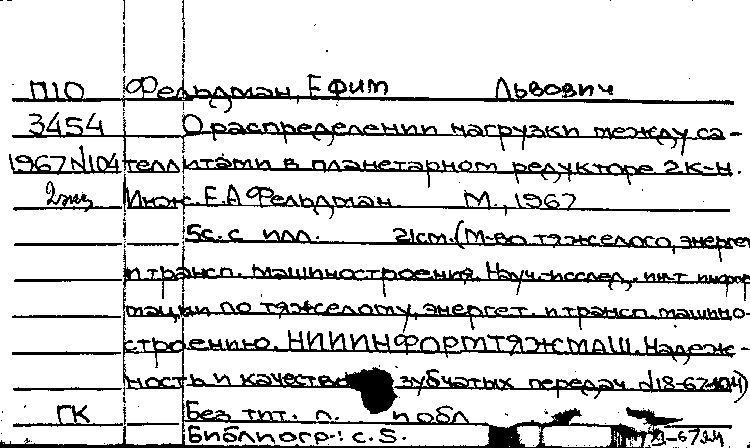 П10 Фельдман, Ефим Львович
3454 О распределении нагрузки между са-
1967 N104 теллитами в планетарном редукторе 2К-Н.
2 экз Инж. Е.А Фельдман. М., 1967
5с. с илл. 21см. (М-во тяжелого, энерге
и трансп. машиностроения. Науч.-исслед. ин-т инфор
мации по тяжелому, энергет. и трансп. машино-
строению. НИИИНФОРМТЯЖМАШ. Надеж-
ность и качество зубчатых передач N18-67-104)
ГК Без тит. л. и обл
Библиогр.: с. 5.